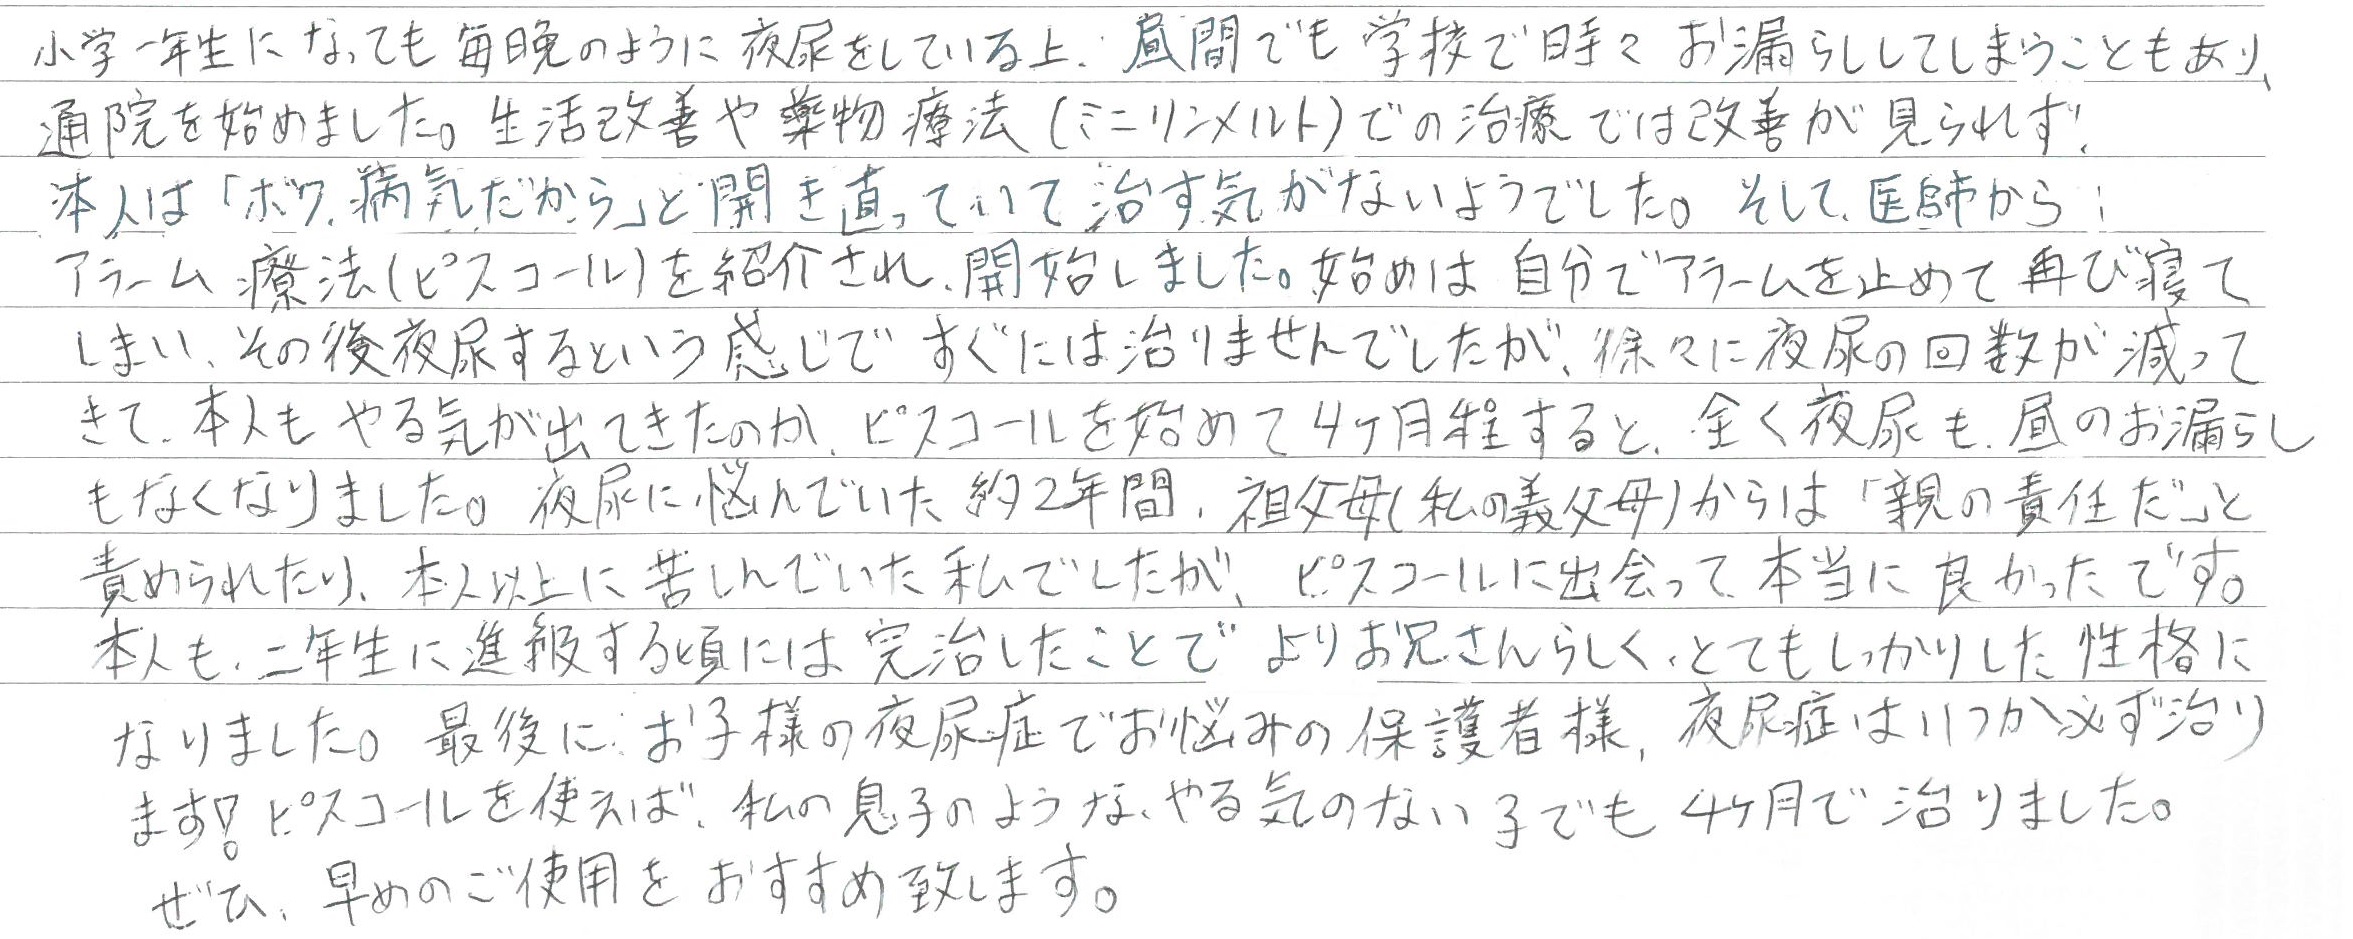 小学一年生になっても毎日晩のように夜尿をしている上、昼間でも学校で時々お漏らししてしまうこともあり、
通院を始めました。生活改善や薬物療法（ミニリンメルト）での治療では改善が見られず、
本人は「ボク、病気だから」と開き直っていて治す気がないようでした。そして、医師から
アラーム療法（ピスコール）を紹介され、開始しました。始めは自分でアラームを止めて再び寝て
しまい、その後夜尿するという感じですぐには治りませんでしたが、徐々に夜尿の回数が減って
きて、本人もやる気が出てきたのか、ピスコールを始めて4ヶ月程すると、全く夜尿も、昼のお漏らし
もなくなりました。夜尿に悩んでいた約2年間、祖父母（私の義父母）からは「親の責任だ」と
責められたり、本人以上に苦しんでいた私でしたが、ピスコールに出会って本当に良かったです。
本人も、二年生に進級する頃には完治したことでよりお兄さんらしく、とてもしっかりした性格に
なりました。最後に、お子様の夜尿症でお悩みの保護者様、夜尿症はいつか必ず治り
ます！ピスコールを使えば、私の息子のような、やる気のない子でも4ヶ月で治りました。
ぜひ、早めのご使用をおすすめ致します。